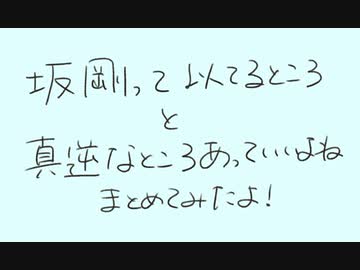 坂剛って似てるところ
と
真逆なところあっていいよね
まとめてみたよ!